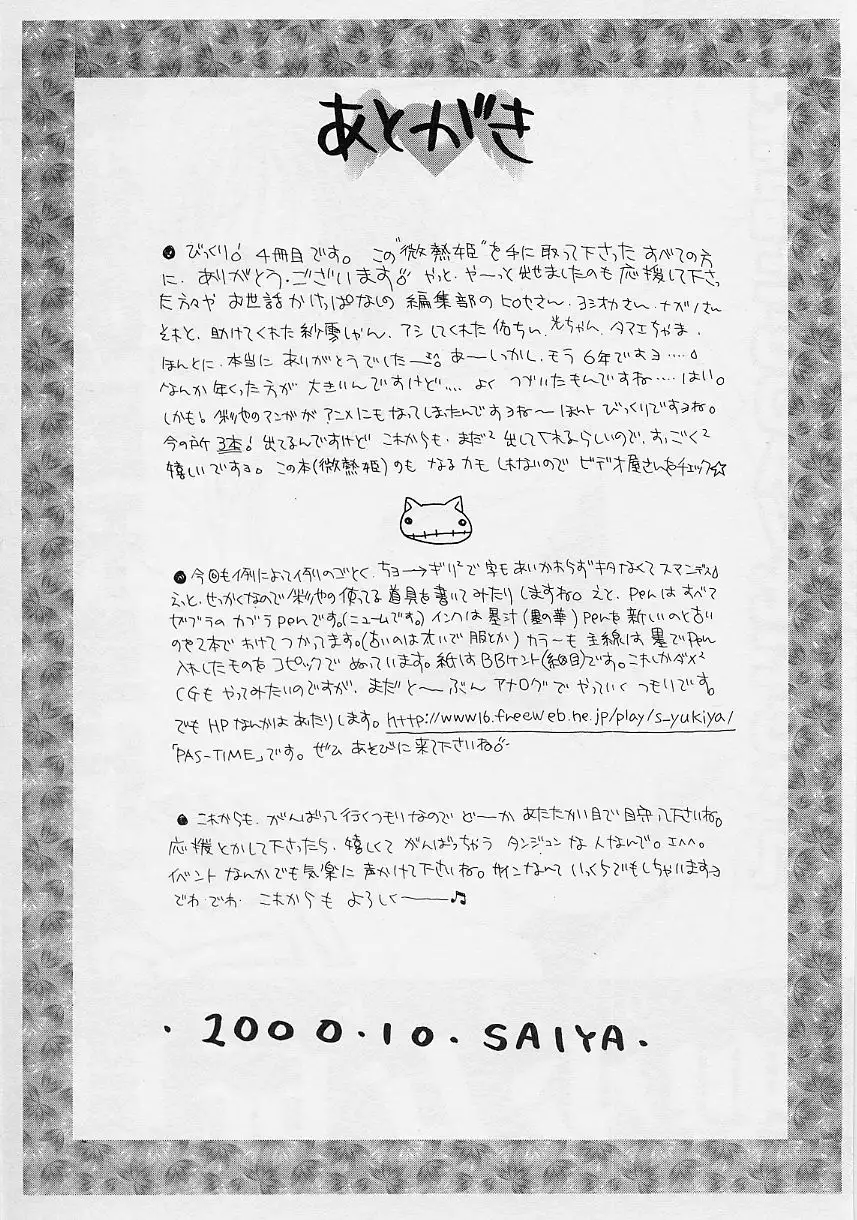 あとがき
● びっくり♪ 4冊目です。この"微熱姫"を手に取って下さったすべての方
に、ありがとう・ございます♪ やっと、や〜っと出せましたのも応援して下さっ
た方々や お世話かけっぱなしの 編集部のヒロセさん、ヨシオカさん、ナガノさん
それと、助けてくれた紗雪しゃん、アシしてくれた佑ちぃ、光ちゃん、タマエちゃま、
ほんとに、本当に ありがとうでした― あーしっかし、もう6年ですョ‥‥。
なんか 年くった方が 大きいんですけど‥‥ よく つづいたもんですね‥‥ はい。
しかも! 彩也のマンガが アニメにもなってしまったんですョね〜 ほんト びっくりですョね。
今の所 3本! 出てるんですけど これからも、まだ² 出して下れるらしいので、すっごく²
嬉しいですョ。この本(微熱姫)のも なるカモ しれないので ビデオ屋さんをチェック☆
● 今回も例によって例のごとく、ちョー→ギリ²で 字も あいかわらず キタなくて スマンデス♪
えっと、せっかくなので彩也の使ってる道具を書いてみたりしますね。えと、Penはすべて
ゼブラの カブラpenです。(ニュームです。) インクは墨汁(墨の華) Penを新しいのと古い
のやて2本で わけて つかってます。(古いのは太いで服とか) カラーも 主線は 墨でPen
入れしたものをコピックで ぬっています。紙はBBケント(細目)です。これしかダメ²
CGも やってみたいのですが、まだ と〜ぶん アナログで やっていく つもりです。
でも HPなんかは あったりします。http://www16.freeweb.ne.jp/play/s_yukiya/
「PAS-TIME」です。ぜひ あそびに来て下さいね♪
● これからも、がんばって行くつもりなので ど〜か あたたかい目で目守って下さいね。
応援とかして下さったら、嬉しくて がんばっちゃう タンジュン な 人なんで。エヘヘ。
イベント なんかでも気楽に 声かけて下さいね。サインなんて いっくらでもしちゃいますョ
でわ・でわ これからも よろしく―――♫
・2000・10・SAIYA・